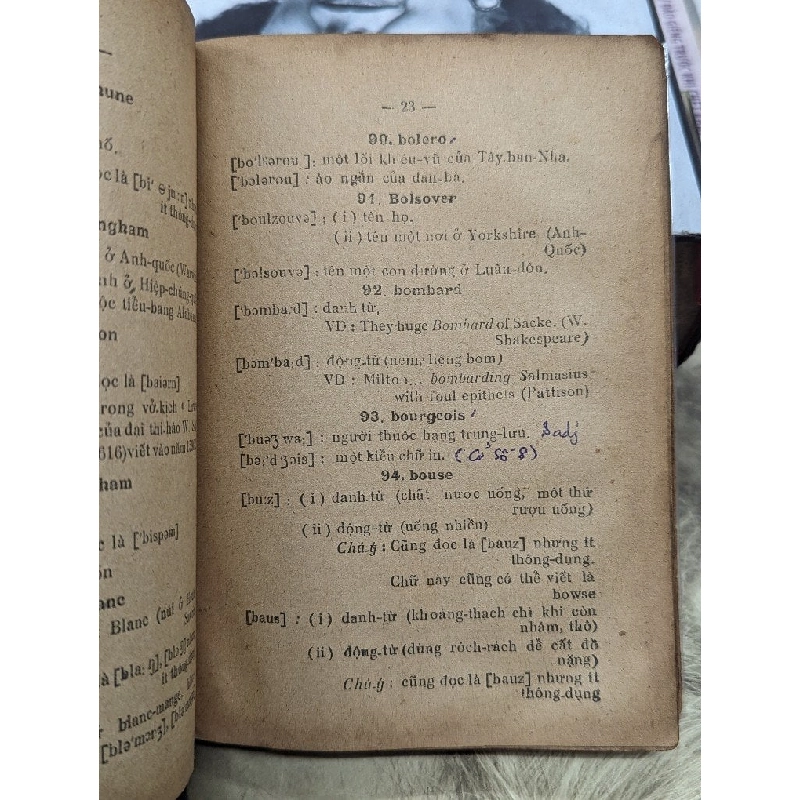 — 23 —
90. bolero
[bo'lɛərou]: một lối khiêu-vũ của Tây-ban-Nha.
['bɔlərou] : áo ngắn của đàn-bà.
91. Bolsover
['boulzouvə] ; (i) tên họ.
(ii) tên một nơi ở Yorkshire (Anh-
Quốc)
['bɔlsouvə] : tên một con đường ở Luân-đôn.
92. bombard
['bɔmba:d] : danh-từ,
VD : They huge Bombard of Sacke. (W.
Shakespeare)
[bəm'ba:d] : động-từ (ném, liệng bom)
VD : Milto ... bombarding Salmasius
with foul epithets (Pattison)
93. bourgeois
['buəʒwa:] : người thuộc hạng trung-lưu. adj
[bə:'dʒɔis] : một kiểu chữ in. (Cỡ số 8)
94. bouse
[bu:z] : (i) danh-từ (chất nước uống, một thứ
rượu uống)
(ii) động-từ (uống nhiều)
Chú-ý : Cũng đọc là [bauz] nhưng ít
thông-dụng.
Chữ này cũng có thể viết là
bowse
[baus] : (i) danh-từ (khoáng-thạch chì khi còn
nhám, thô)
(ii) động-từ (dùng ròch-rách để cất đồ
nặng)
Chú-ý : cũng đọc là [bauz] nhưng ít
thông-dụng
mune
ngham
ở Anh-quốc
ộc tiểu-bang
on
ọc là [baiəm]
rong vở-kịch
của đại thi-hào W. S
616) viết vào năm
ham
c là ['bispəm]
ôn
anc
Blanc
ít thông-
blanc-mange,